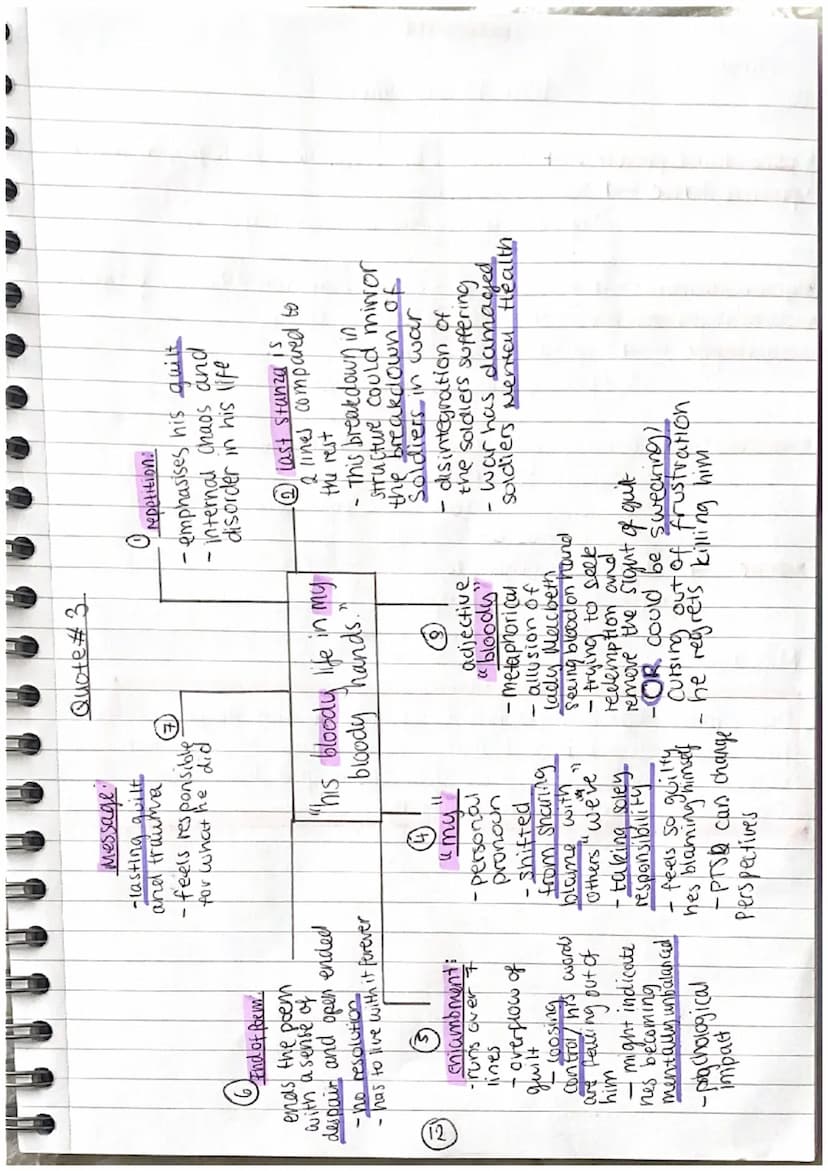 Quote #3
① repetition:
- emphasises his guilt
- internal chaos and
disorder in his life
② last stanza is
2 lines compared to
the rest
- This breakdown in
structure could mirror
the breakdown of
soldiers in war
- disintegration of
the soldiers suffering
- war has damaged
soldiers mental health
"his bloody life in my
bloody hands."
③
adjective
"bloody"
- metaphorical
- allusion of
lady Macbeth
seeing blood on hand
- trying to seek
redemption and
remove the sight of guilt
- OR could be swearing/
cursing out of frustration
- he regrets killing him
④
"my"
- personal
pronoun
- shifted
from sharing
blame with
others "we're"
- taking soley
responsibility
- feels so guilty
hes blaming himself
- PTSD can change
perspectives
⑤
enjambment:
- runs over 7
lines
- overflow of
guilt
- loosing
control his words
are falling out of
him
- might indicate
hes becoming
mentally unbalanced
- psychological
impact
⑥ End of Poem:
ends the poem
with a sense of
despair and open ended
- no resolution
- has to live with it forever
Message: ⑦
- lasting guilt
and trauma
- feels responsible
for what he did
⑫